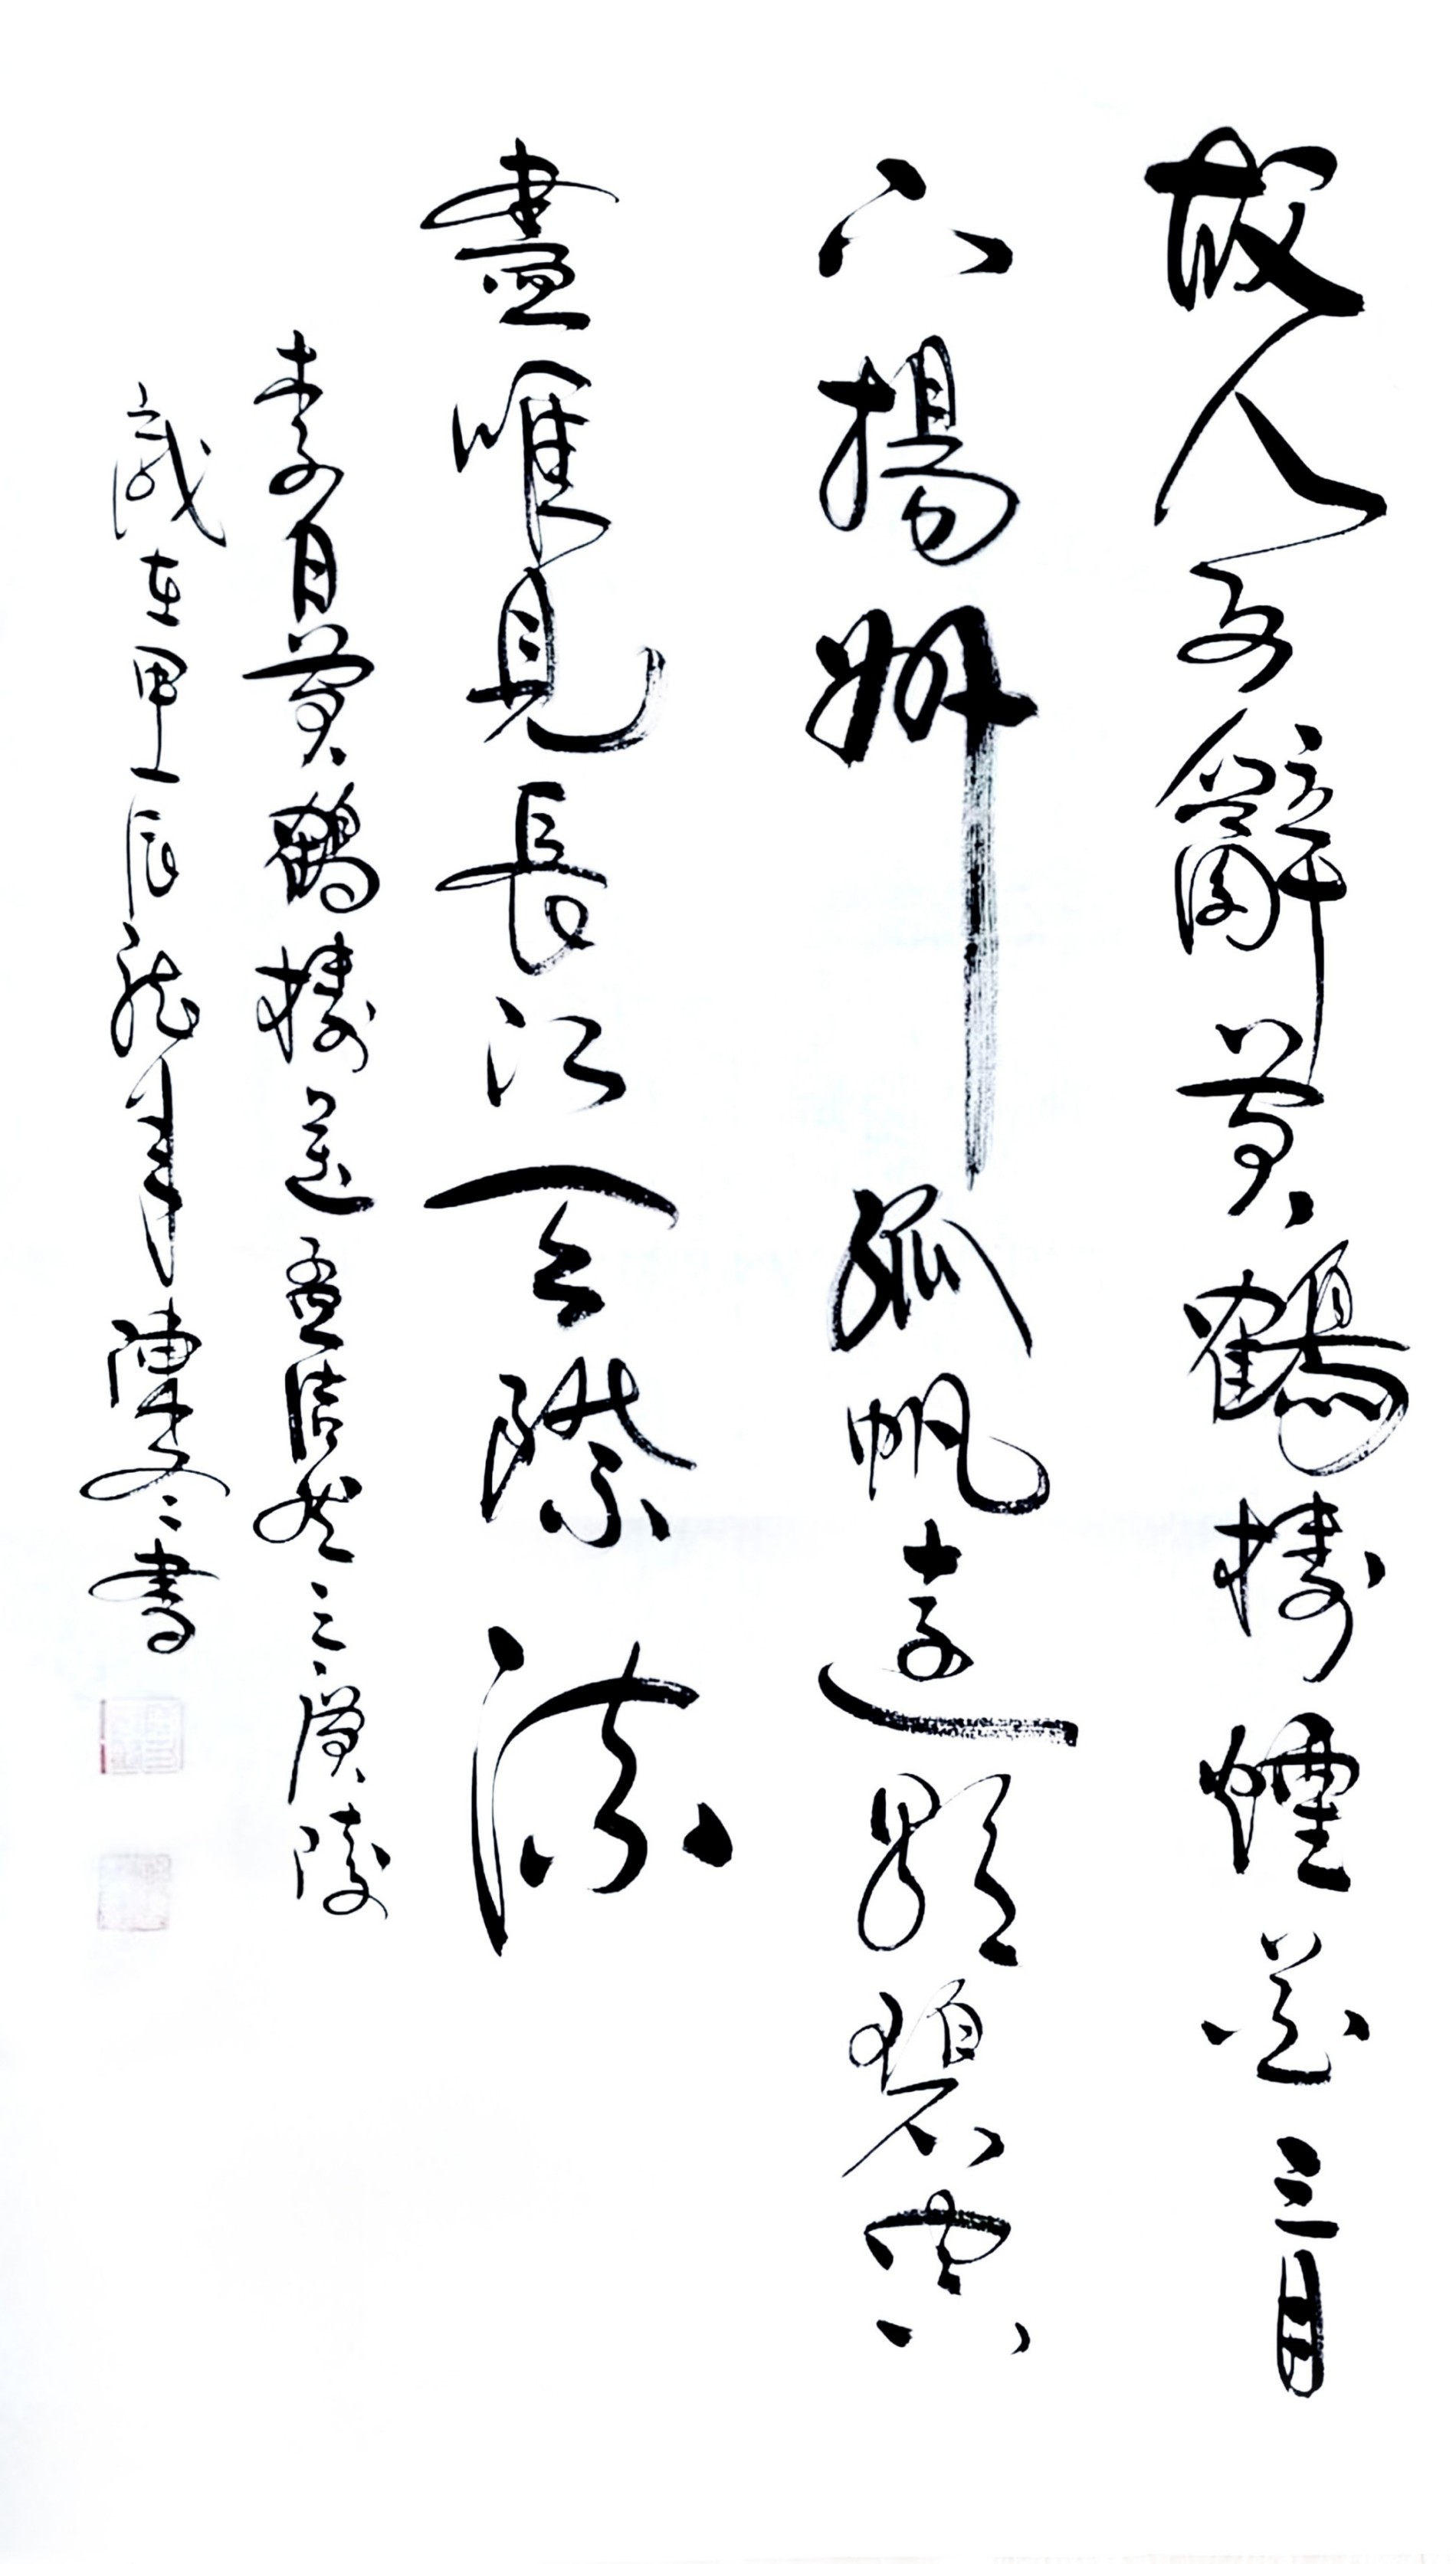 故人西辭黃鶴樓煙花三月
下揚州孤帆遠影碧空
盡唯見長江天際流
李白黃鶴樓送孟浩然之廣陵
歲在甲辰龍年陳冬冬書